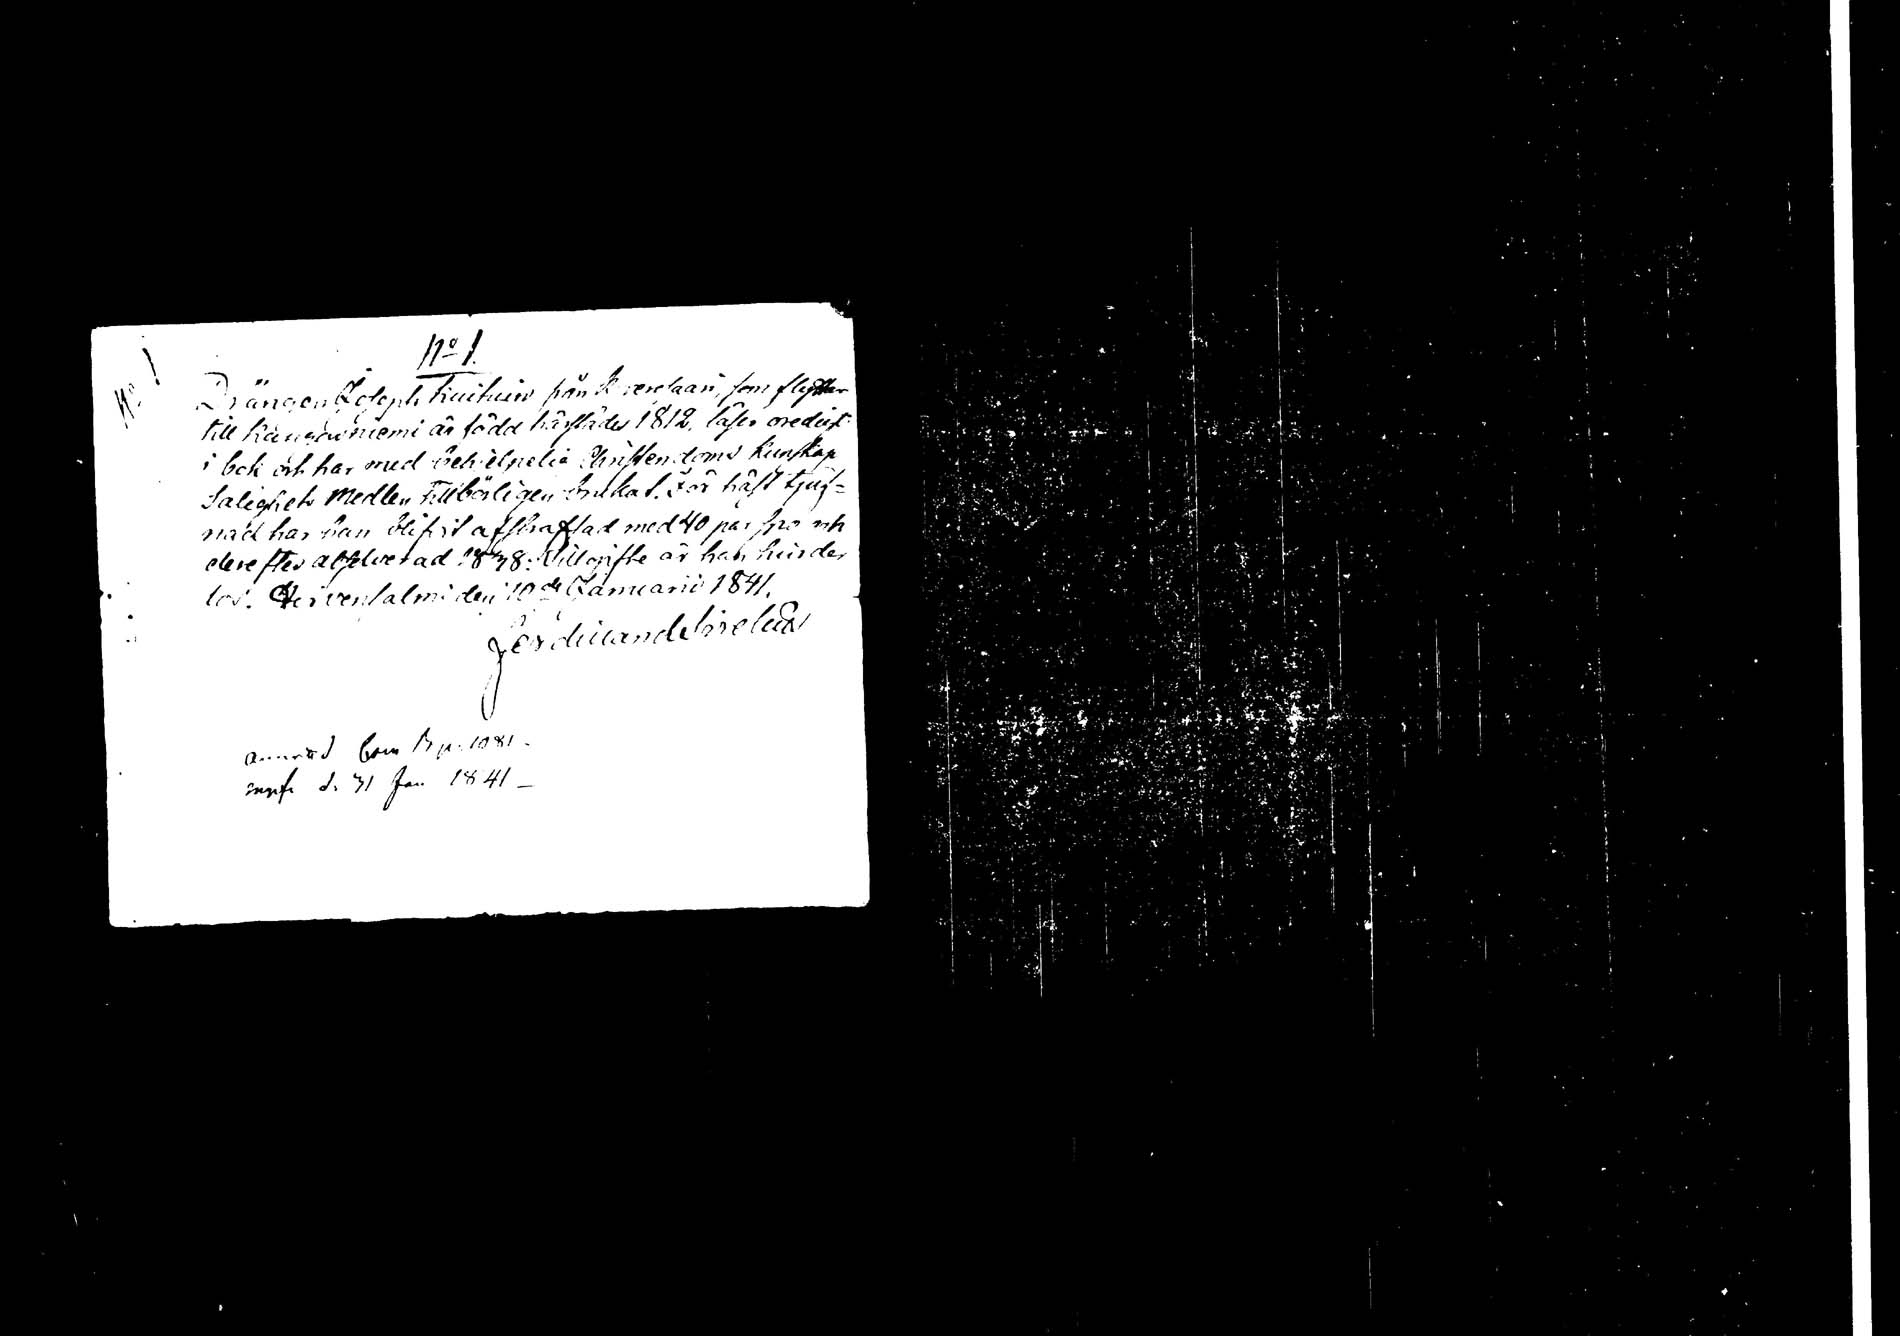 No 1.
No 1
Drängen Joseph från som flyttar
till Kangasniemi är född härstädes 1812, läser oredigt
i bok och har med behjelpelig Christendoms kunskap
Salighets Medlen tillbörligen brukat. För häst tjuf-
nad har han blifvit afstraffad med 40 par spö och
derefter absolverad 1838. Till gifte är han hinder
lös. Hirvensalmi den 10de Januarii 1841.
Ferdinand Sirelius
p. 1081.
d. 31 Jan 1841